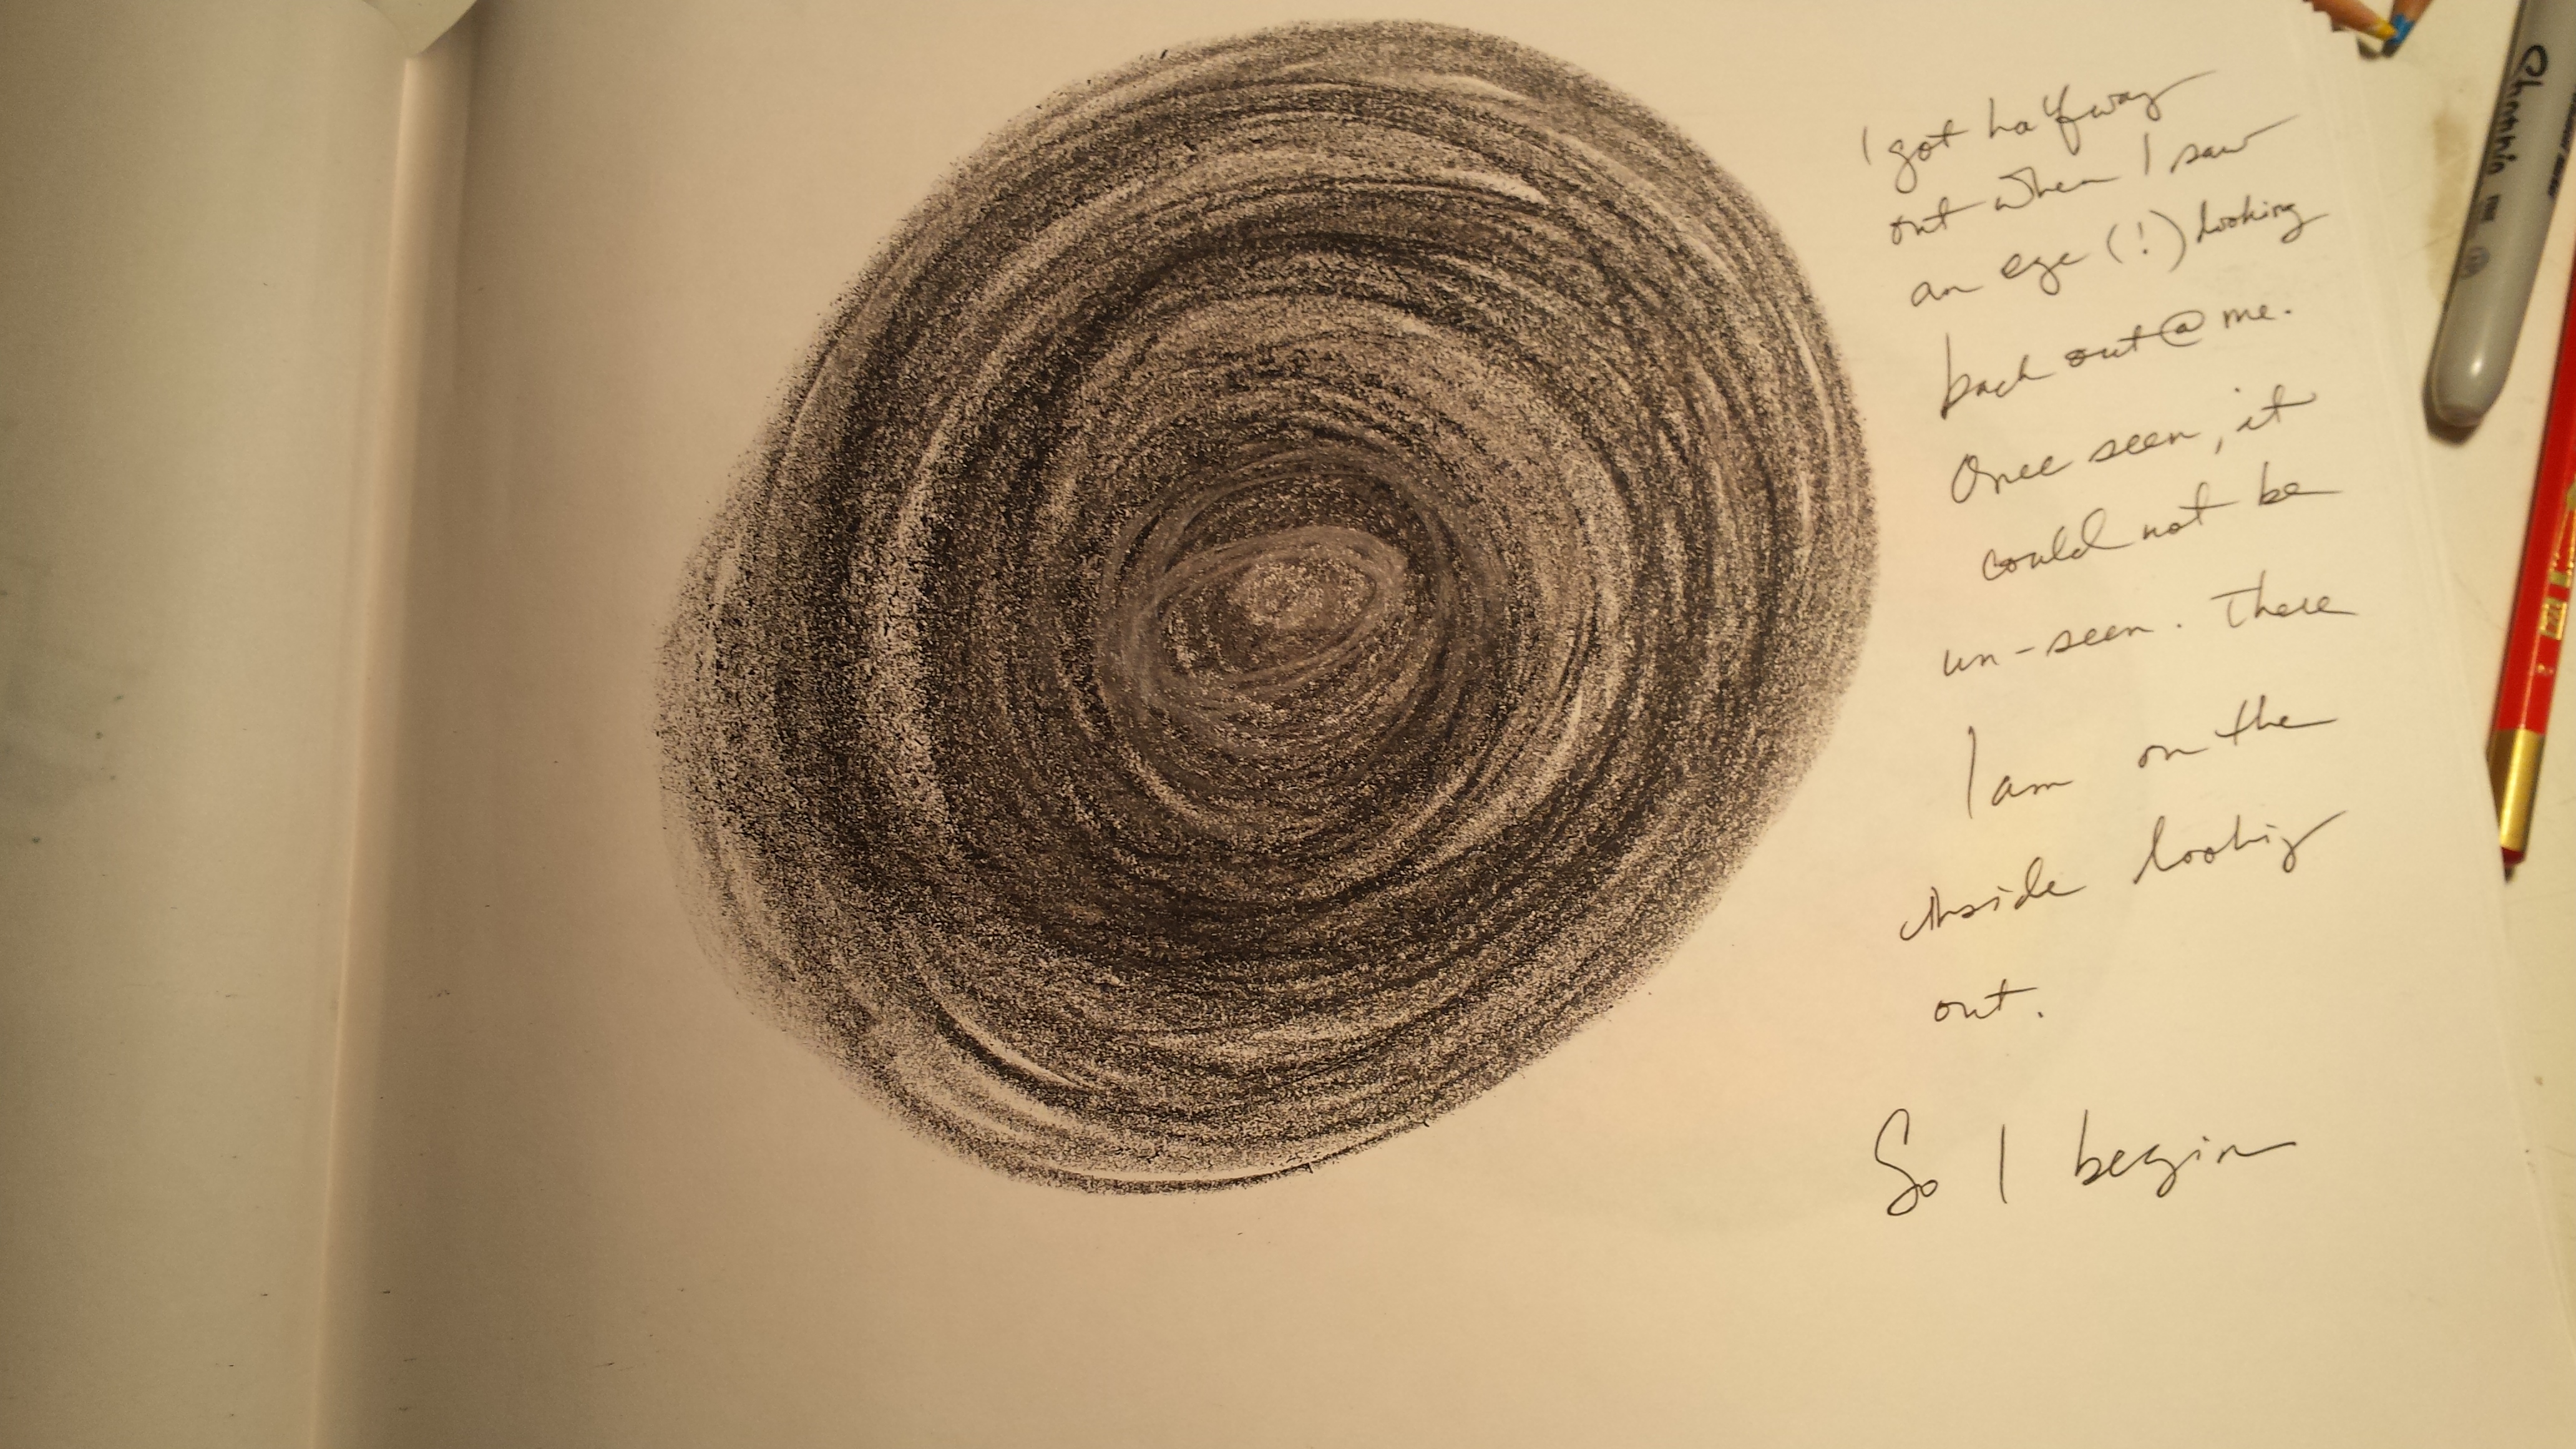 I got halfway
out when I saw
an eye (!) looking
back out @ me.
Once seen, it
could not be
un-seen. There
I am on the
inside looking
out.
So I begin
Sharpie